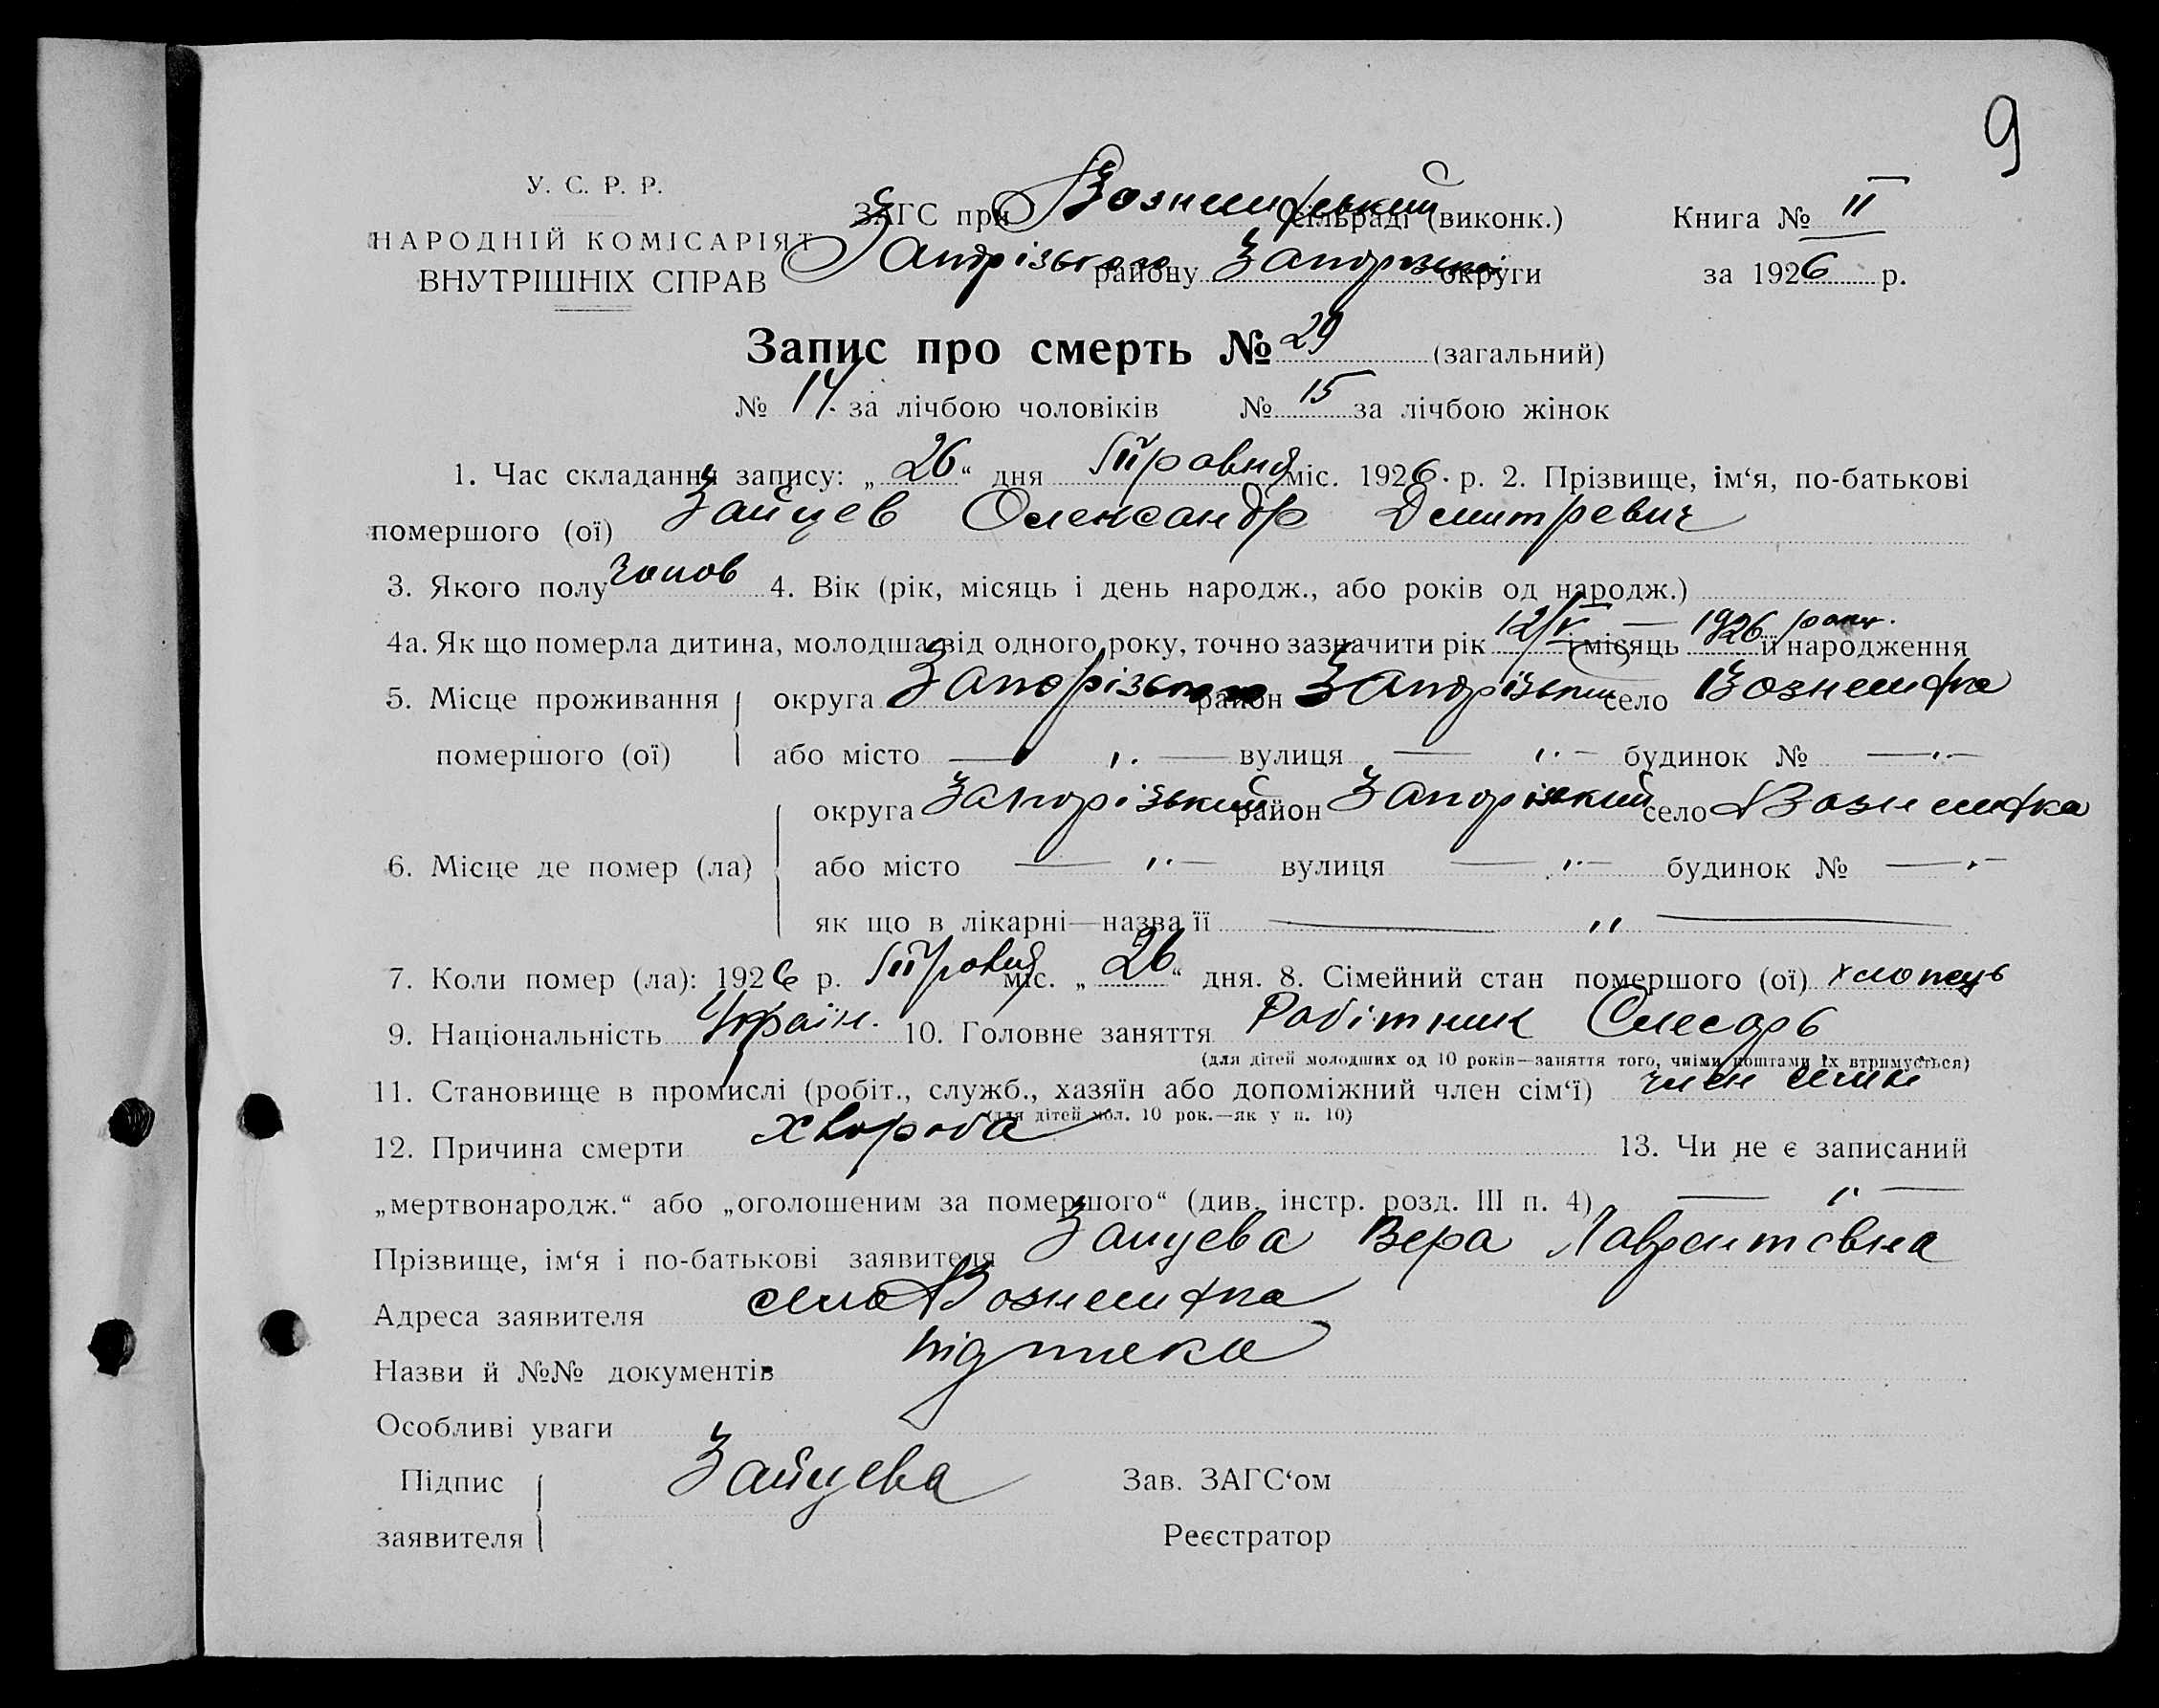 9
У. С. Р. Р.
НАРОДНІЙ КОМІСАРІЯТ
ВНУТРІШНІХ СПРАВ
ЗАГС при Вознешфський сільраді (виконк.)
Запорізького району Запорізький округи
Книга № II
за 1926 р.
Запис про смерть № 29 (загальний)
№ 14 за лічбою чоловіків № 15 за лічбою жінок
1. Час складання запису: „26“ дня міс. 1926 р. 2. Прізвище, ім‘я, по-батькові
помершого (ої) Зайцев Олександр Дмитревич
3. Якого полу чолов 4. Вік (рік, місяць і день народж., або років од народж.)
4а. Як що померла дитина, молодша від одного року, точно зазначити рік 12/V — і місяць 1926 її народження
5. Місце проживання округа Запорізького район Запорізький село Вознешфка
помершого (ої) або місто — ,, — вулиця — ,, — будинок № — ,, —
округа Запорізький район Запорізький село Вознешфка
6. Місце де помер (ла) або місто — ,, — вулиця — ,, — будинок № — ,, —
як що в лікарні—назва її — ,, —
7. Коли помер (ла): 1926 р. міс. „26“ дня. 8. Сімейний стан помершого (ої) хлопець
9. Національність Україн. 10. Головне заняття Робітник Слесарь
(для дітей молодших од 10 років—заняття того, чиїми коштами їх втримується)
11. Становище в промислі (робіт., служб., хазяїн або допоміжний член сім‘ї) член семи
(для дітей мол. 10 рок.—як у п. 10)
12. Причина смерти хвороба 13. Чи не є записаний
„мертвонародж.“ або „оголошеним за помершого“ (див. інстр. розд. III п. 4) — ,, —
Прізвище, ім‘я і по-батькові заявителя Зайцева Вера Лаврентовна
Адреса заявителя село Вознешфка
Назви й №№ документів підписка
Особливі уваги
Підпис заявителя Зайцева
Зав. ЗАГС‘ом
Реєстратор